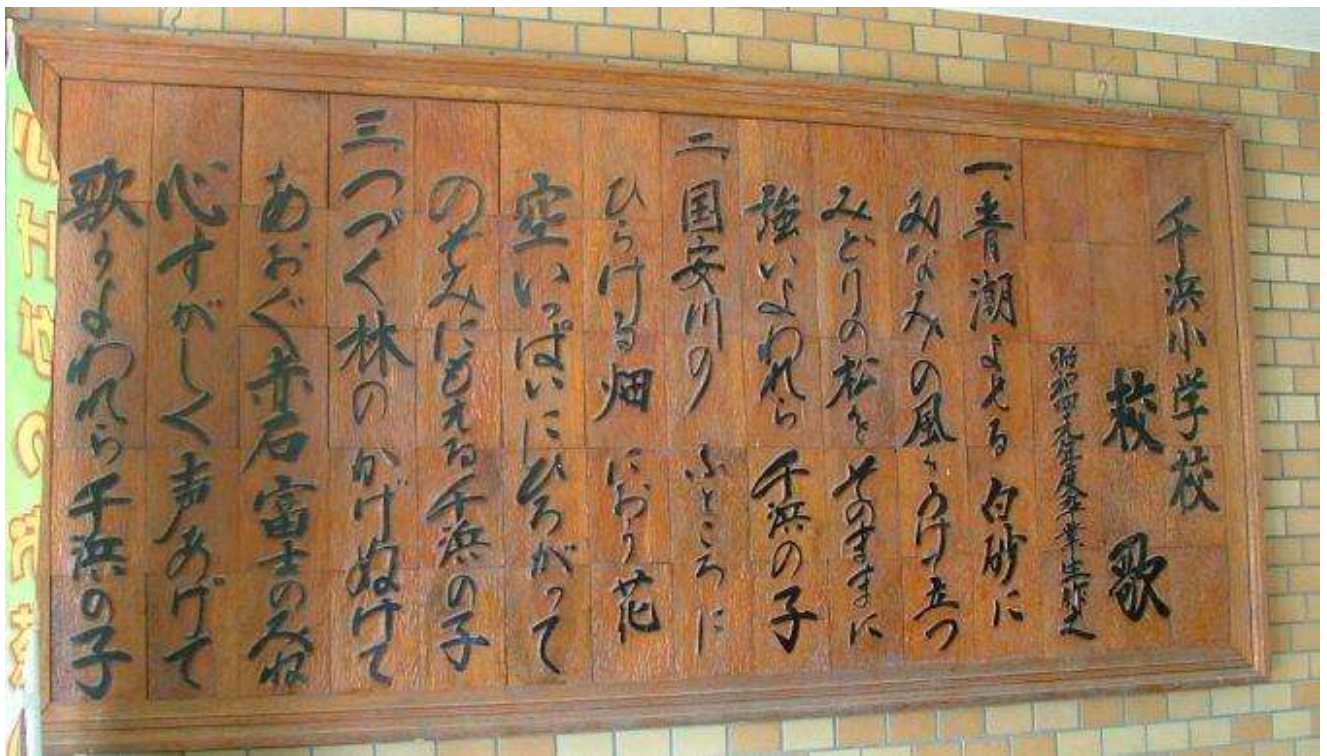 千浜小学校
校歌
昭和四十九年度卒業生彫之
一、青潮よせる 白砂に
みなみの風に うけて立つ
みどりの松を そのままに
強いよわれら 千浜の子
二、国安川の ふところに
ひらける畑 におう花
空いっぱいに ひろがって
のぞみにもえる 千浜の子
三 つづく林の かげぬけて
あおぐ赤石 富士のみね
心すがしく 声あげて
歌うよわれら 千浜の子